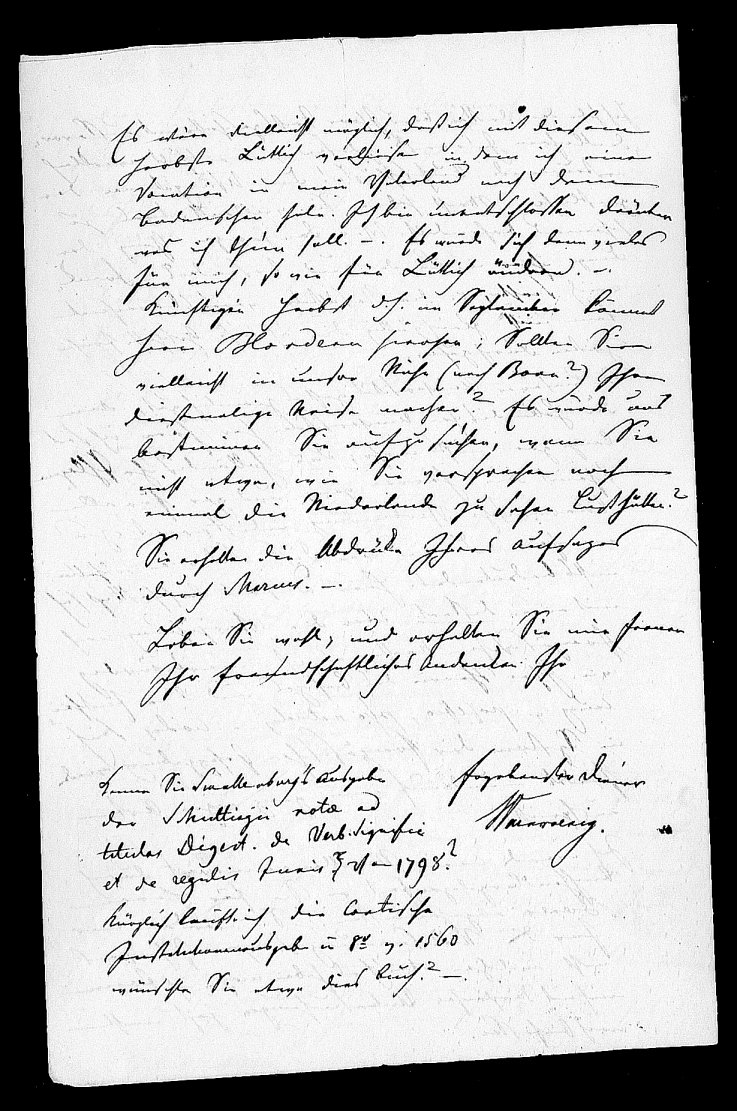 Es wäre vielleicht möglich, daß ich mit diesem
Herbste Lüttich verlasse, indem ich eine
Vocation in mein Vaterland nach dem
Badenschen habe. Ich bin unentschlossen darüber
was ich thun soll. –. Es würde sich dann vieles
für mich, so wie für Lüttich ändern. –.
Künftigen Herbst dh. im September kömmt
Herr Blondeau hierher; Sollten Sie
vielleicht in unsre Nähe (nach Bonn?) Ihre
dießmalige Reise machen? Es würde uns
bestimmen Sie aufzusuchen, wenn Sie
nicht etwa, wie Sie versprachen noch
einmal die Niederlande zu sehen Lust hätten?
Sie erhalten die Abdrücke Ihres Aufsatzes
durch Marcus. –.
Leben Sie wohl, und erhalten Sie mir ferner
Ihr freundschaftliches Andenken. Ihr
ergebenster Diener
Warnkönig.
Kennen Sie Smallenburg's Ausgabe
der Schultingii notæ ad
titulos Digest. de Verb. Signific
et de regulis Juris von 1798?
Kürzlich kaufte ich die
Institutionenausgabe in 8º v. 1560
wünschten Sie etwa dies Buch? –.